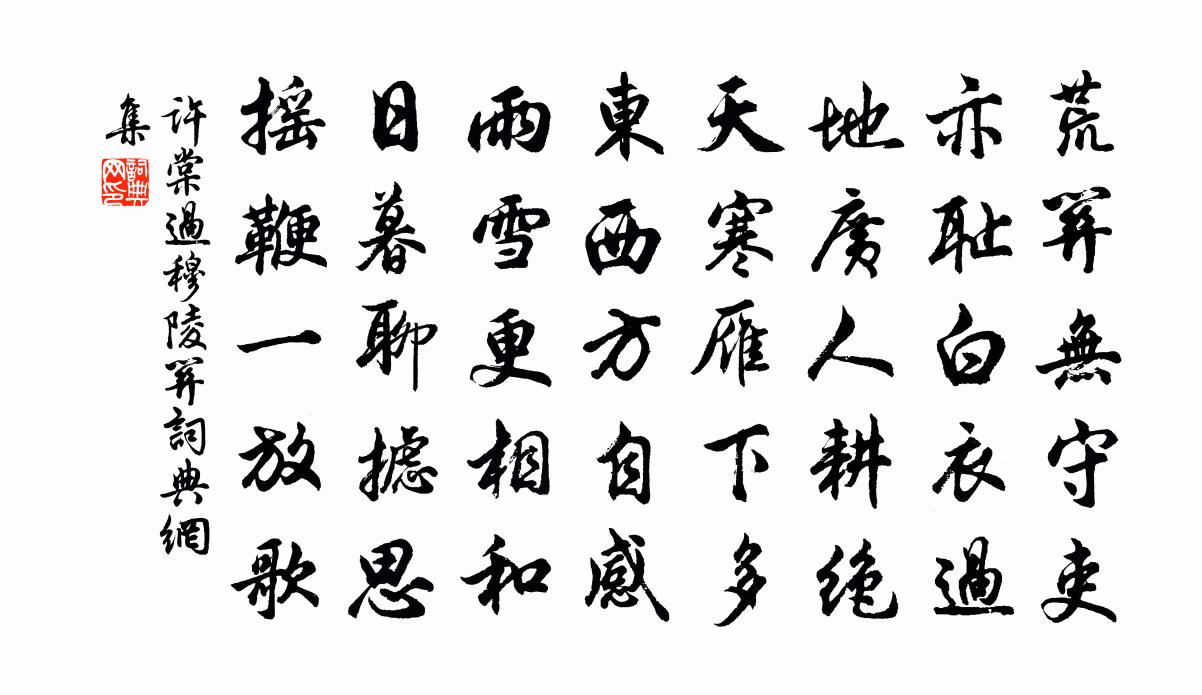 荒關無守吏
亦恥白衣過
地廣人耕絶
天寒雁下多
東西方自感
雨雪更相和
日暮聊攄思
搖鞭一放歌
許棠過穆陵關詞典網
集
詞典网印